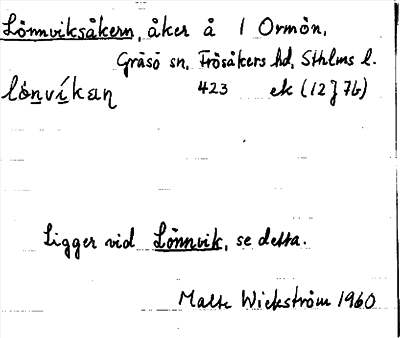 Lönnviksåkern, åker å 1 Ormön,
Gräsö sn, Frösåkers hd, Sthlms l.
lönvíkan 423 ek (12J7b)
Ligger vid Lönnvik, se detta.
Malte Wickström 1960